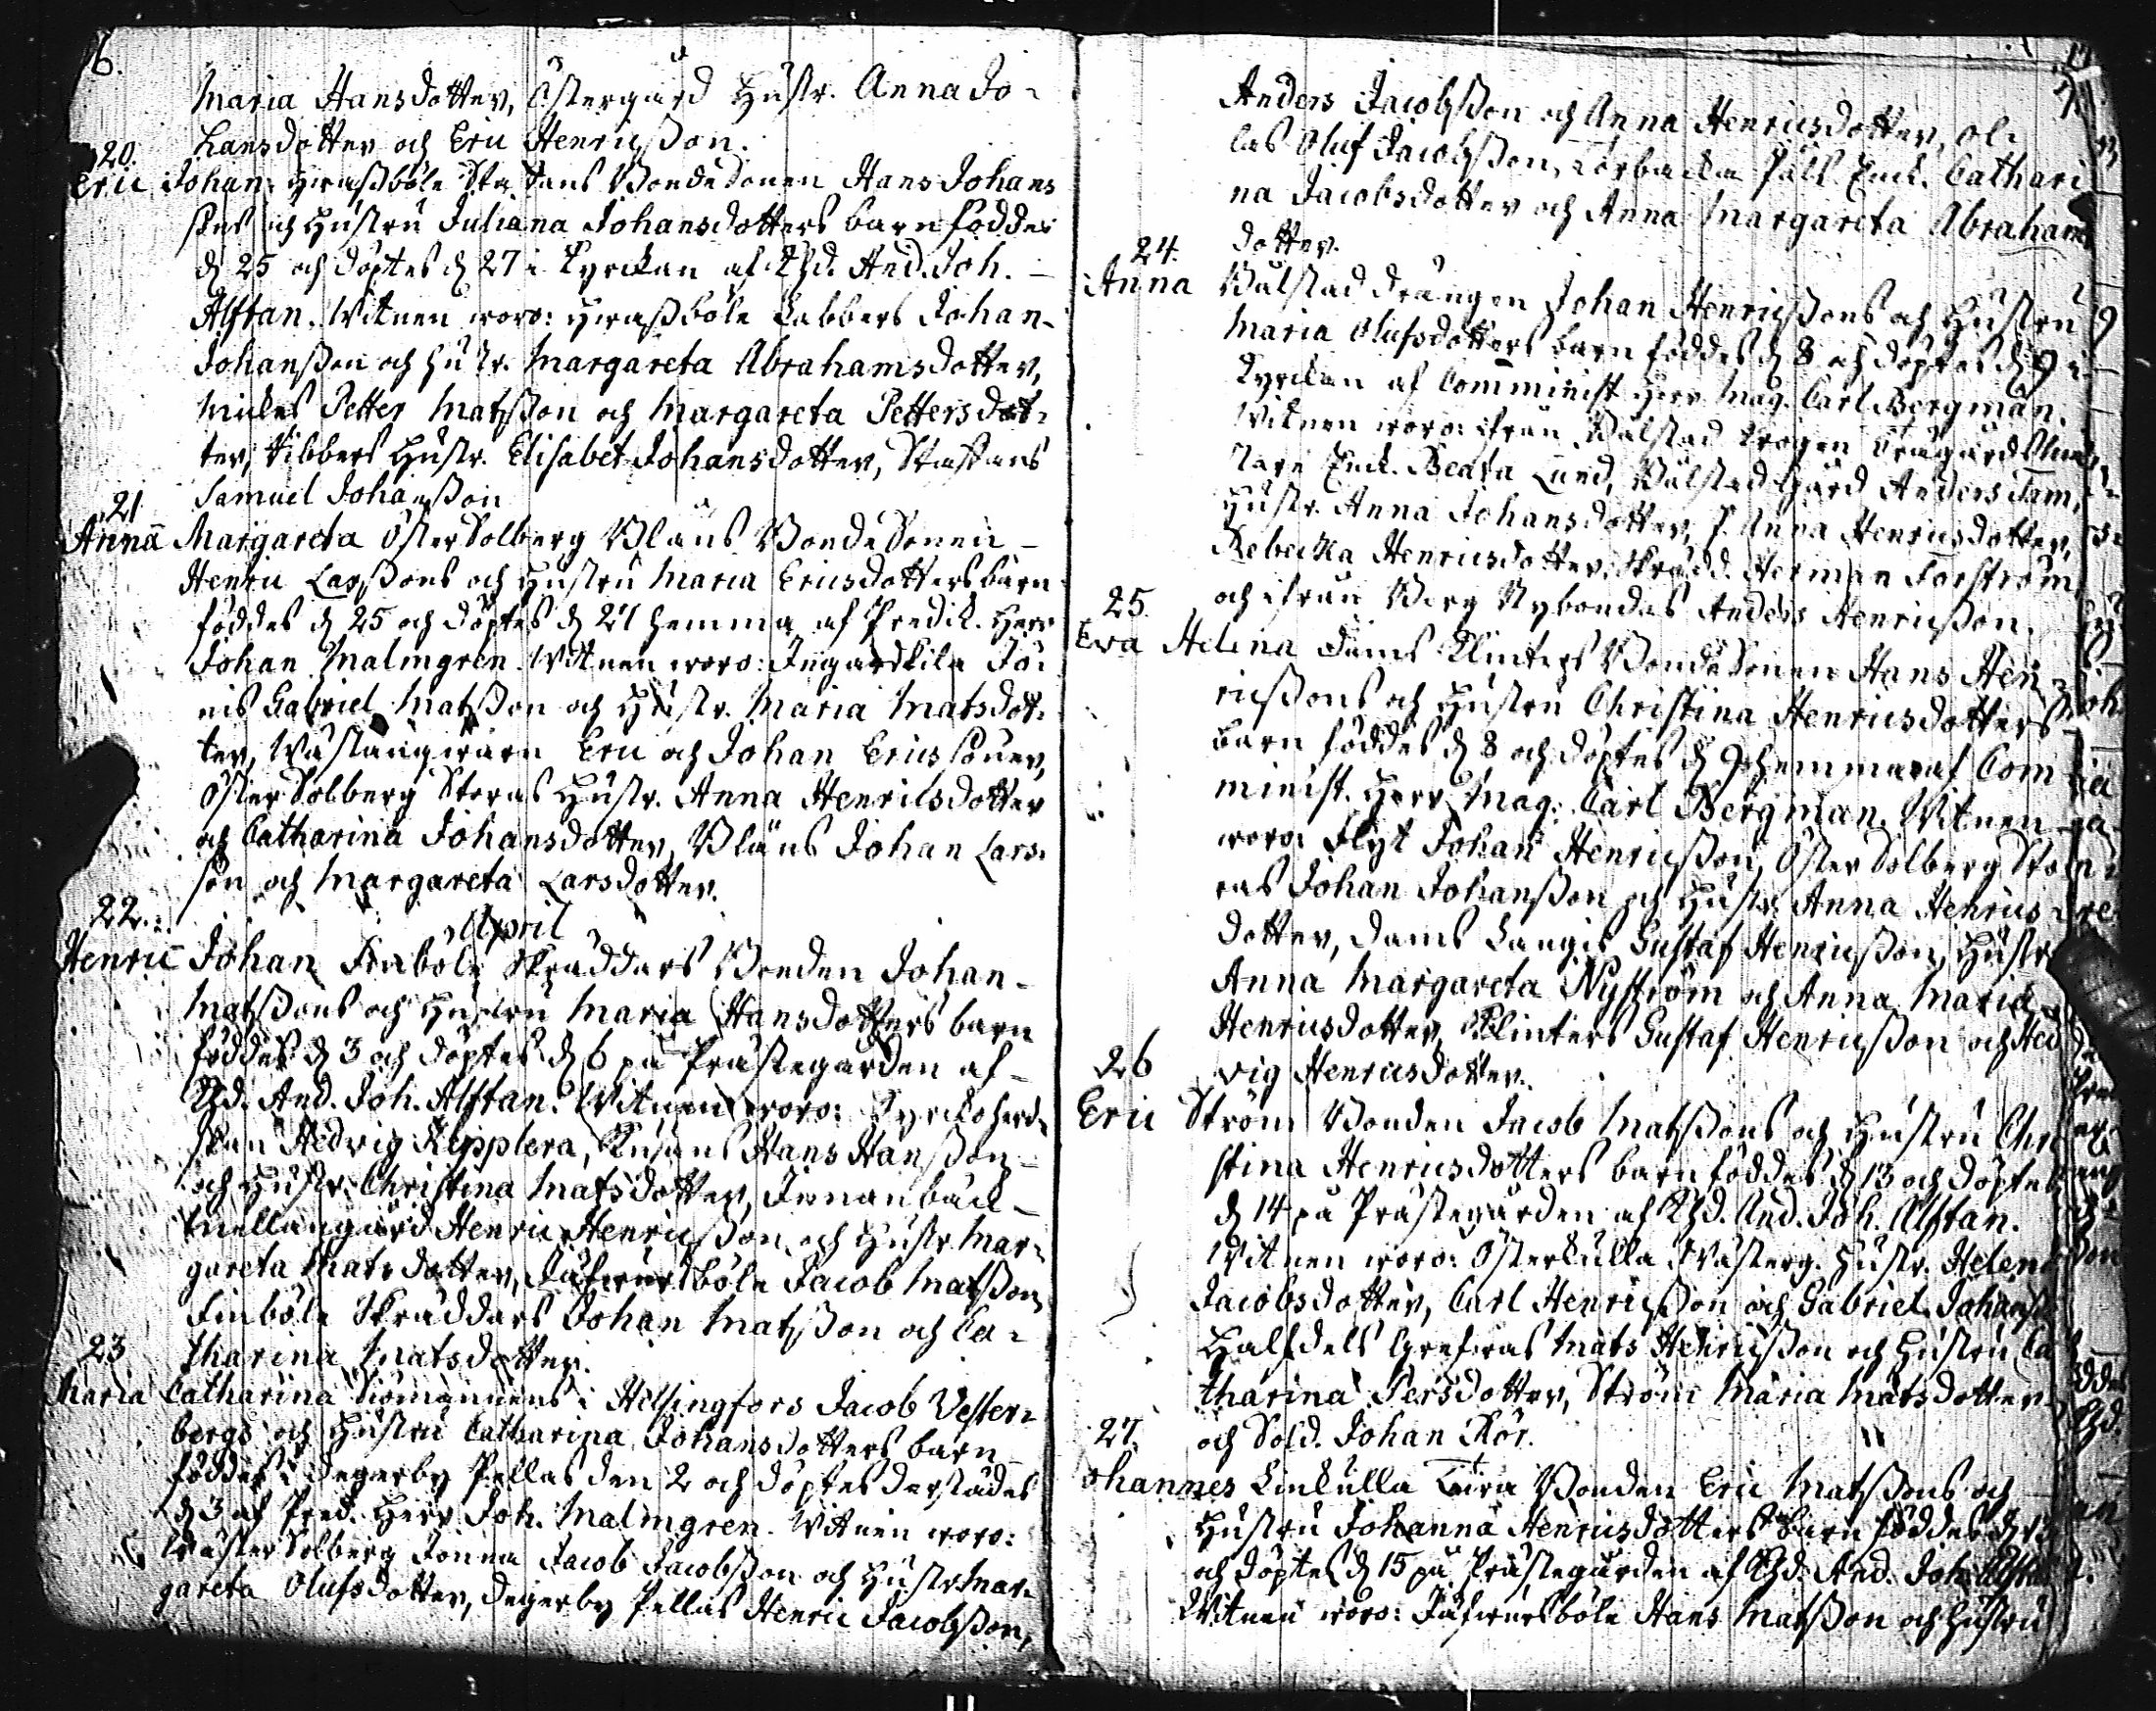 6.
Maria Hansdotter, Östergård Hustr. Anna Jo-
hansdotter och Eric Henricsson.
20.
Eric Johan, Hvassböle Staffans BondeSonen Hans Johans
sons och Hustru Juliana Johansdotters barn föddes
d 25 och döptes d 27 i Kyrckan af Khd. And. Joh.
Alftan. Witnen woro: Hvassböle Labbers Johan
Johansson och Hustr. Margareta Abrahamsdotter,
Mickes Petter Matsson och Margareta Pettersdot-
ter, Nibbers Hustr. Elisabet Johansdotter, Staffans
Samuel Johansson
21
Anna Margareta ÖsterSolberg Blåus BondeSonen
Henric Larssons och Hustru Maria Ericsdotters barn
föddes d 25 och döptes d 27 hemma af Predik. Herr
Johan Malmgren. Witnen woro: Ingarskila Jö-
nis Gabriel Matsson och Hustr. Maria Matsdot-
ter, Eric och Johan Ericssöner,
ÖsterSolberg Storas Hustr. Anna Henricsdotter
och Catharina Johansdotter, Blåus Johan Lars-
son och Margareta Larsdotter.
April
22.
Henric Johan Finböle Skräddars Bonden Johan
Matssons och Hustru Maria Hansdotters barn
föddes d 3 och döptes d 6 på Prästegården af
Khd. And. Joh. Alftan. Witnen woro: Kyrckoherd-
skan Hedvig Kepplera, Hans Hansson
och Hustr. Christina Matsdotter, Finnanbäck
Mellangård Henric Henricsson och Hustr. Mar-
gareta Matsdotter, Jacob Matsson
Finböle Skräddars Johan Matsson och Ca-
tharina Matsdotter.
23
Maria Catharina Siömannens i Helsingfors Jacob Vester-
bergs och Hustru Catharina Johansdotters barn
föddes i Degerby Pellas den 2 och döptes derstädes
d 3 af Pred. Herr Joh. Malmgren. Witnen woro:
WästerSolberg Jonna Jacob Jacobsson och Hustr Mar-
gareta Olufsdotter, Degerby Pellas Henric Jacobsson,
7.
Anders Jacobsson och Anna Henricsdotter, Ol-
las Oluf Jacobsson, Torbacka Påls Enck. Cathari
na Jacobsdotter och Anna Margareta Abrahams
dotter.
24.
Anna Bålstad drängen Johan Henricssons och Hustru
Maria Olufsdotters barn föddes d 8 och döptes d 9 i
Kyrckan af Comminist Herr Mag. Carl Bergman.
Witnen woro: ifrån Bålstad
Enck. Beata Lund, Bålstad Gård Anders
Hustr. Anna Johansdotter, P. Anna Henricsdotter,
Rebecka Henricsdotter, Skrädd. Herman Forström
och ifrån Berg Nybondas Anders Henricsson.
25.
Eva Helena Dams Klinters BondeSonen Hans Hen
ricssons och Hustru Christina Henricsdotters
barn föddes d 8 och döptes d 9 hemma af Com
minist. Herr Mag. Carl Bergman. Witnen
woro: Flyt Johan Henricsson, ÖsterSolberg Sto
ras Johan Johansson och Hustr. Anna Henrics
dotter, Dams Langis Gustaf Henricsson, Hustr.
Anna Margareta Nyström och Anna Maria
Henricsdotter, Klinters Gustaf Henricsson och Hed
vig Henricsdotter.
26
Eric Ström Bonden Jacob Matssons och Hustru Chri
stina Henricsdotters barn föddes d 13 och döptes
d 14 på Prästegården af Khd. And. Joh. Alftan.
Witnen woro: Österkulla Wästerg. Hustr. Helena
Jacobsdotter, Carl Henricsson och Gabriel Johanss
Halfdels Grefvas Mats Henricsson och Hustru Ca
tharina Persdotter, Ström Maria Matsdotter
och Sold. Johan Rör.
27.
Johannes Linkulla Bonden Eric Matssons och
Hustru Johanna Henricsdotters barn föddes d 13
och döptes d 15 på Prästegården af Khd. And. Joh. Alftan
Witnen woro: Hans Matsson och Hustru